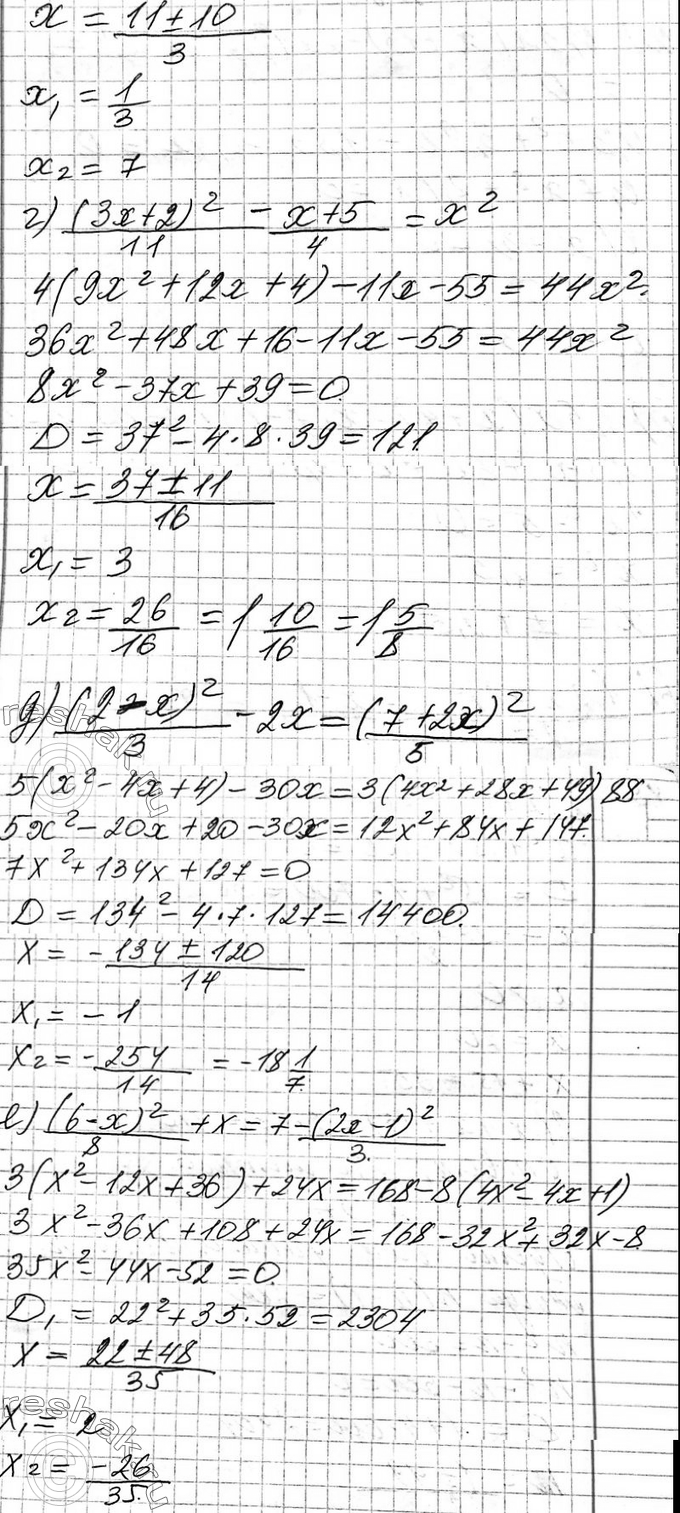 x = (11±10)/3
x₁ = 1/3
x₂ = 7
г) (3x+2)²/11 - (x+5)/4 = x²
4(9x²+12x+4)-11x-55=44x²
36x²+48x+16-11x-55=44x²
8x²-37x+39=0
D = 37²-4·8·39=121
x = (37±11)/16
x₁ = 3
x₂ = 26/16 = 1 10/16 = 1 5/8
д) (2-x)²/3 - 2x = (7+2x)²/5
5(x²-4x+4)-30x=3(4x²+28x+49) 88
5x²-20x+20-30x=12x²+84x+147
7x²+134x+127=0
D = 134²-4·7·127=14400.
x = -134±120/14
x₁ = -1
x₂ = -254/14 = -18 1/7
е) (6-x)²/8 + x = 7-(2x-1)²/3
3(x²-12x+36)+24x=168-8(4x²-4x+1)
3x²-36x+108+24x=168-32x²+32x-8
35x²-44x-52=0
D₁ = 22²+35·52=2304
x = (22±48)/35
x₁ = 2
x₂ = -26/35
reshak.ru
reshak.ru